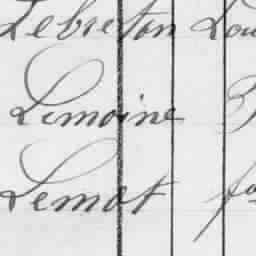 Lebreton Lou
Lemoine
Lemot